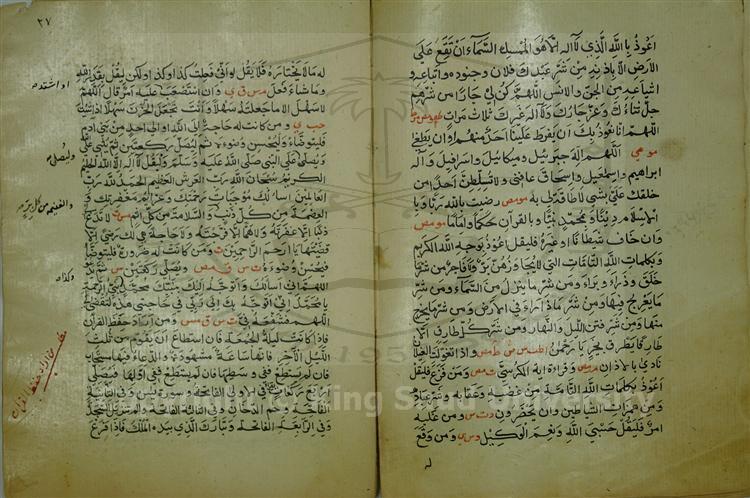 اعوذ بالله الذي لا اله الا هو الممسك السماء ان تقع على
الارض الا باذنه من شر عبدك فلان وجنوده واتباعه و
اشياعه من الجن والانس اللهم كن لي جارا من شرهم
جل ثناؤك وعز جارك ولا اله غيرك ثلاث مرات
اللهم انا نعوذ بك ان يفرط علينا احد منهم او ان يطغى
مو مي اللهم اله جبرئيل وميكائيل واسرافيل واله
ابراهيم واسمعيل واسحاق عافني ولا تسلطن احدا من
خلقك علي بشئ لا طاقة لي به مو مص رضيت بالله ربا وبا
الاسلام دينا وبمحمد نبيا وبالقران حكما واماما مو مص
وان خاف شيطانا او غيره فليقل اعوذ بوجه الله الكريم
وبكلمات الله التامات التي لا يجاوزهن بر ولا فاجر من شر ما
خلق وذرأ وبرأ ومن شر ما ينزل من السماء ومن شر
ما يعرج فيها ومن شر ما ذرأ في الارض ومن شر ما يخرج
منها ومن شر فتن الليل والنهار ومن شر كل طارق الا
طارقا يطرق بخير يا رحمن واذا تغولت الغيلان
نادى بالاذان وقراءة اية الكرسي ت مص ومن فزع فليقل
اعوذ بكلمات الله التامة من غضبه وعقابه وشر عباده
ومن همزات الشياطين وان يحضرون د ت س ومن غلبه
امر فليقل حسبي الله ونعم الوكيل د س ي ومن وقع
له
٢٧
له ما لا يختاره فلا يقل لو اني فعلت كذا وكذا ولكن ليقل بقدر الله
وما شاء فعل م س ق ي وان استصعب عليه امر قال اللهم
لا سهل الا ما جعلته سهلا وانت تجعل الحزن سهلا اذا شئت
حب ي ومن كانت له حاجة الى الله او الى احد من بني ادم
فليتوضأ وليحسن وضوءه ثم ليصل ركعتين ثم يثني على الله
ويصلي على النبي صلى الله عليه وسلم وليقل لا اله الا الله الحليم
الكريم سبحان الله رب العرش العظيم الحمد لله رب
العالمين اسالك موجبات رحمتك وعزائم مغفرتك و
العصمة من كل ذنب والسلامة من كل اثم مس لا تدع لي
ذنبا الا غفرته ولا هما الا فرجته ولا حاجة هي لك رضى الا
قضيتها يا ارحم الراحمين ت ومن كانت له ضرورة فليتوضأ
فيحسن وضوءه ت س ق مص ويصلي ركعتين س ثم يدعو
اللهم اني اسالك واتوجه اليك بنبيك محمد نبي الرحمة
يا محمد اني اتوجه بك الى ربي في حاجتي هذه لتقضى لي
اللهم فشفعه في ت س ق مس ومن اراد حفظ القران
فاذا كانت ليلة الجمعة فان استطاع ان يقوم من ثلث
الليل الاخر فانها ساعة مشهودة والدعاء فيها مستجاب
فان لم يستطع ففي وسطها فان لم يستطع ففي اولها فيصلي
اربع ركعات في الاولى الفاتحة وسورة يس وفي الثانية
الفاتحة وحم الدخان وفي الثالثة الفاتحة والم تنزيل السجدة
وفي الرابعة الفاتحة وتبارك الذي بيده الملك فاذا فرغ
وليصل
وكذا